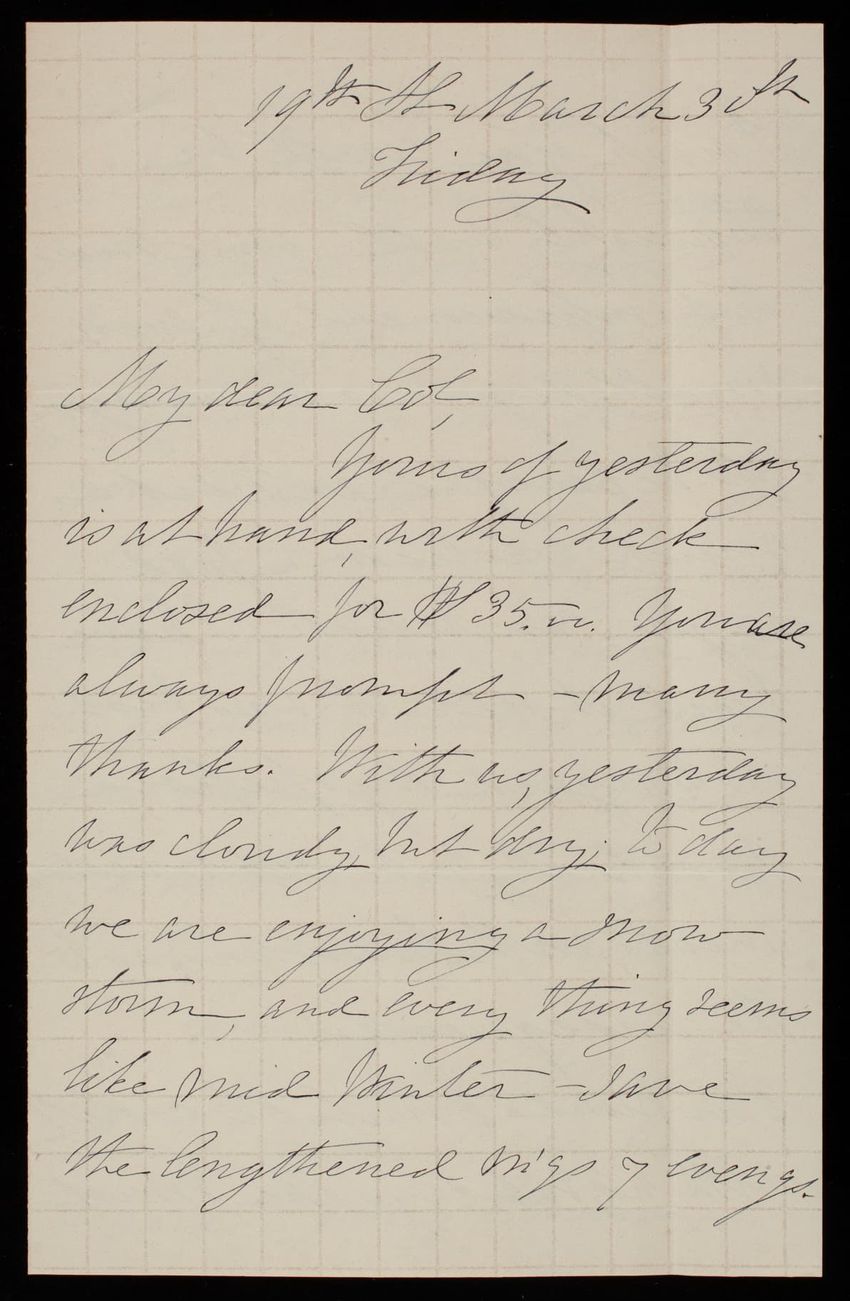 19th St March 30th
Friday
My dear Col,
Yours of yesterday
is at hand, with check
enclosed for $35.00. You are
always prompt - many
thanks. With us, yesterday
was cloudy, but dry; to day
we are enjoying a snow
storm, and every thing seems
like mid Winter - save
the lengthened m'gs & evengs.